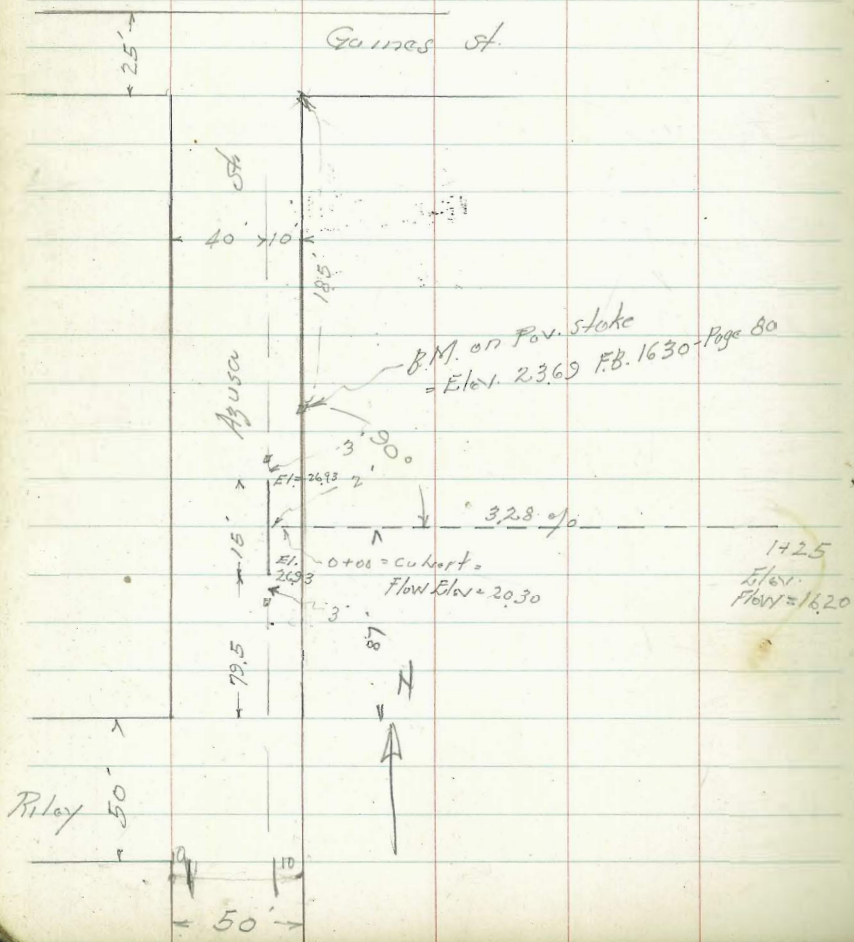 Gaines St.
25'
St
40' 10'
185'
B.M. on Pav. stake
= Elev. 23.69 F.B. 1630 - Page 80
Azusa
3' 90°
El = 26.93 2'
3.28 %
15'
El. 26.93
0+00 = culvert =
Flow Elev = 20.30
1+25
Elev.
Flow = 16.20
3'
87'
79.5
N
Riley
50'
10
50'